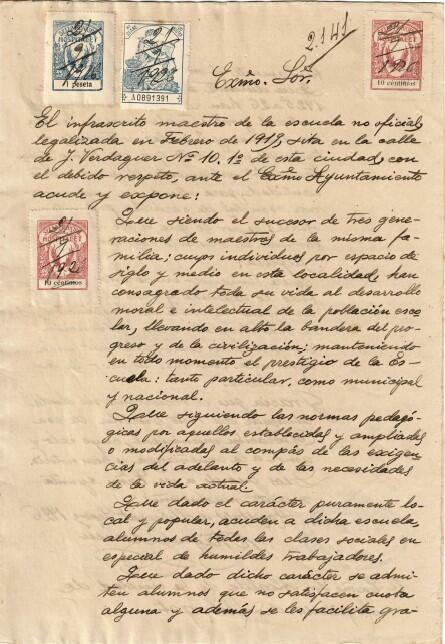 HOSPITALET
1 peseta
A0891391
2.141
Exmo. Sor.
HOSPITALET
10 céntimos
El infrascrito maestro de la escuela no oficial
legalizada en Febrero de 1919, sita en la calle
de J. Verdaguer Nº 10, 1º de esta ciudad, con
el debido respeto, ante el Exmo Ayuntamiento
acude y expone:
HOSPITALET
10 céntimos
Que siendo el sucesor de tres gene-
raciones de maestros de la misma fa-
milia; cuyos individuos por espacio de
siglo y medio en esta localidad, han
consagrado toda su vida al desarrollo
moral e intelectual de la población esco-
lar, llevando en alto la bandera del pro-
greso y de la civilización; manteniendo
en todo momento el prestigio de la Es-
cuela: tanto particular, como municipal
y nacional.
Que siguiendo las normas pedagó-
gicas por aquellos establecidas y ampliadas
o modificadas al compás de las exigen-
cias del adelanto y de las necesidades
de la vida actual:
Que dado el carácter puramente lo-
cal y popular, acuden a dicha escuela
alumnos de todas las clases sociales en
especial de humildes trabajadores.
Que dado dicho carácter se admi-
ten alumnos que no satisfacen cuota
alguna y además se les facilita gra-